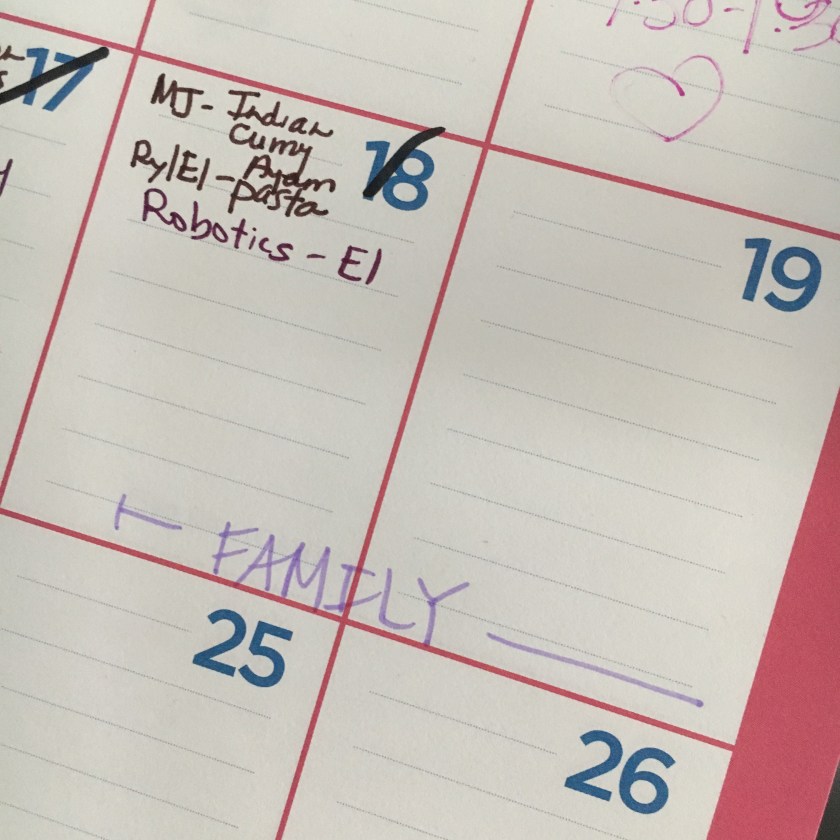 17
MJ- Indian
Curry
18
Ry/El - Ayam
pasta
Robotics - El
19
FAMILY
25
26